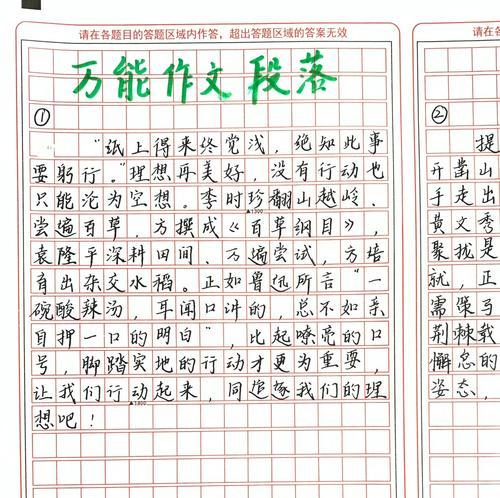 请在各题目的答题区域内作答，超出答题区域的答案无效
万能作文段落
①
“纸上得来终觉浅，绝知此事
要躬行。”理想再美好，没有行动也
只能沦为空想。李时珍翻山越岭、
▲1300
尝遍百草，方撰成《百草纲目》，
袁隆平深耕田间、万遍尝试，方培
育出杂交水稻。正如鲁迅所言“一
碗酸辣汤，耳闻口讲的，总不如亲
自押一口的明白”，比起嘹亮的口
号，脚踏实地的行动才更为重要，
让我们行动起来，同追逐我们的理
▲1800
想吧！
请在各
②
提
开凿山
手走出
黄文秀
聚拢是
就，正
需保弓
荆棘载
懈怠的
姿态，